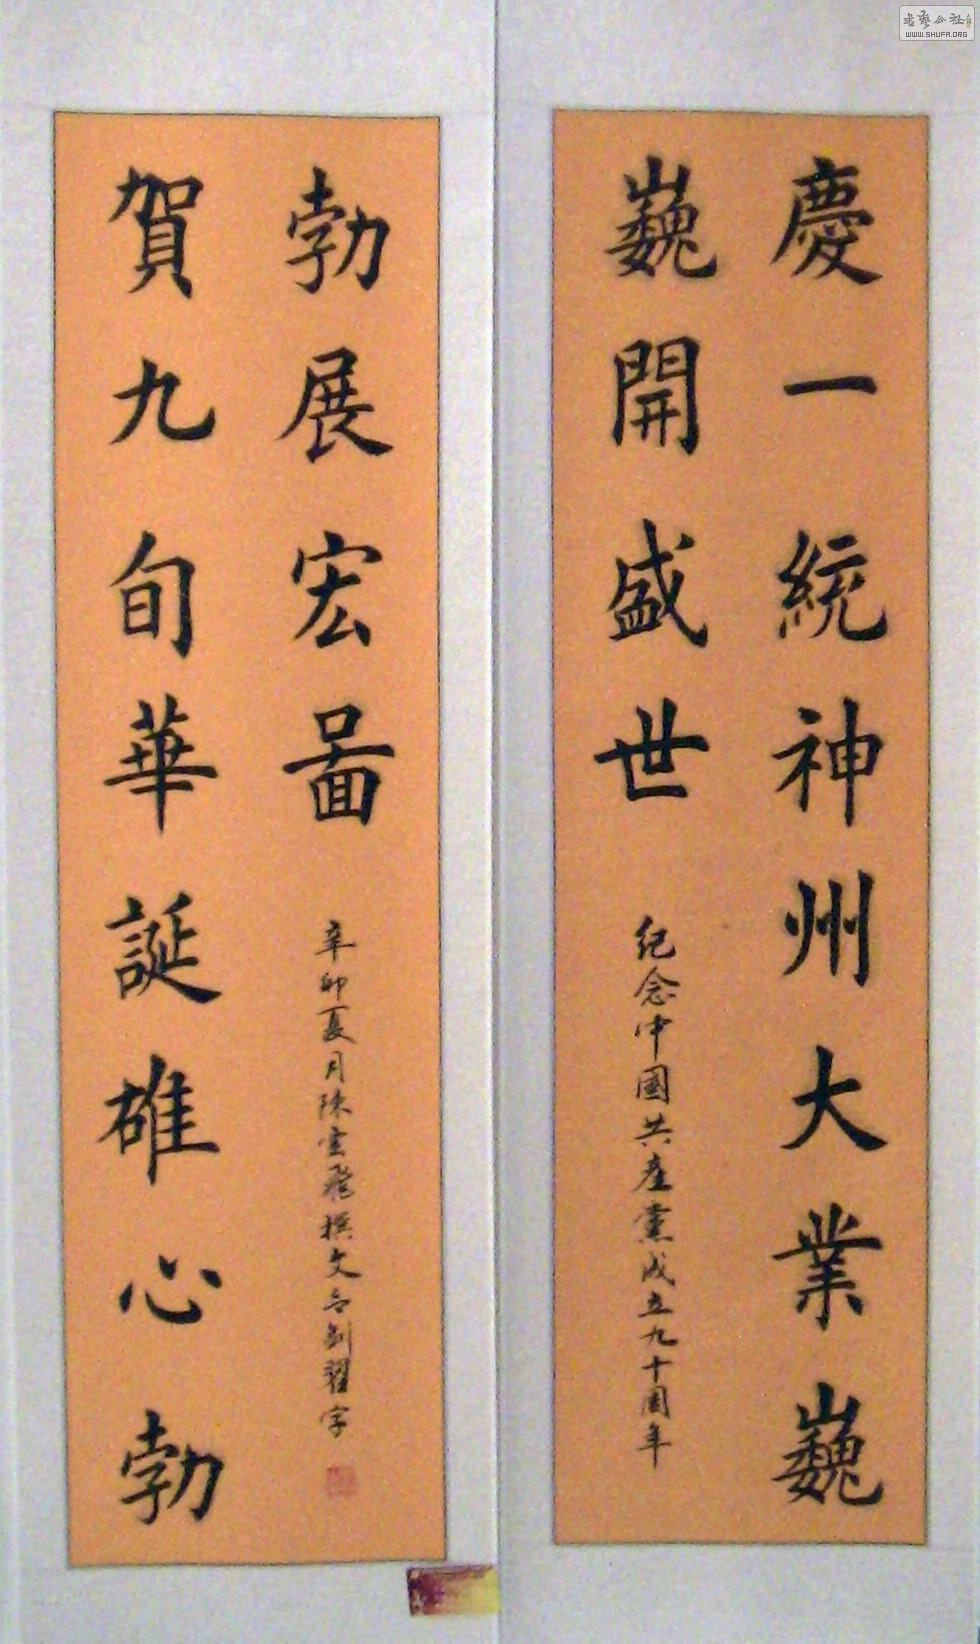 慶一統神州大業巍
巍開盛世
紀念中國共產黨成立九十周年
賀九旬華誕雄心勃
勃展宏啚
辛卯夏月陳雲飛撰文
WWW.SHUFA.ORG